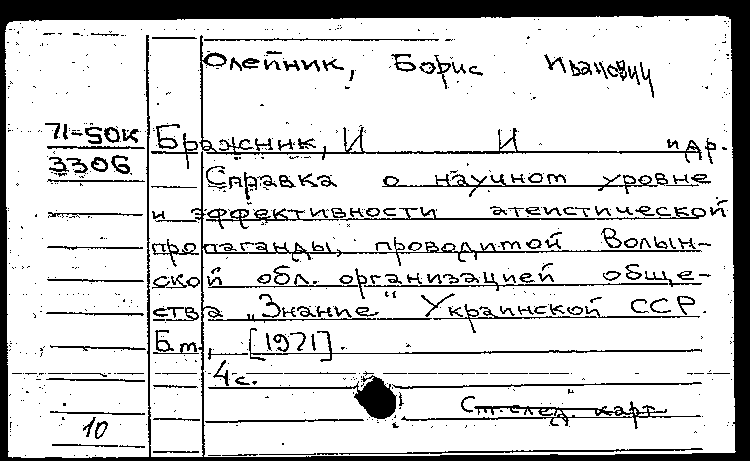 Олейник, Борис Иванович
71-50к
3306
Бражник, И И и др.
Справка о научном уровне
и эффективности атеистической
пропаганды, проводимой Волын-
ской обл. организацией обще-
ства „Знание“ Украинской ССР.
Б.м., [1971].
4 с.
См. след. карт.
10